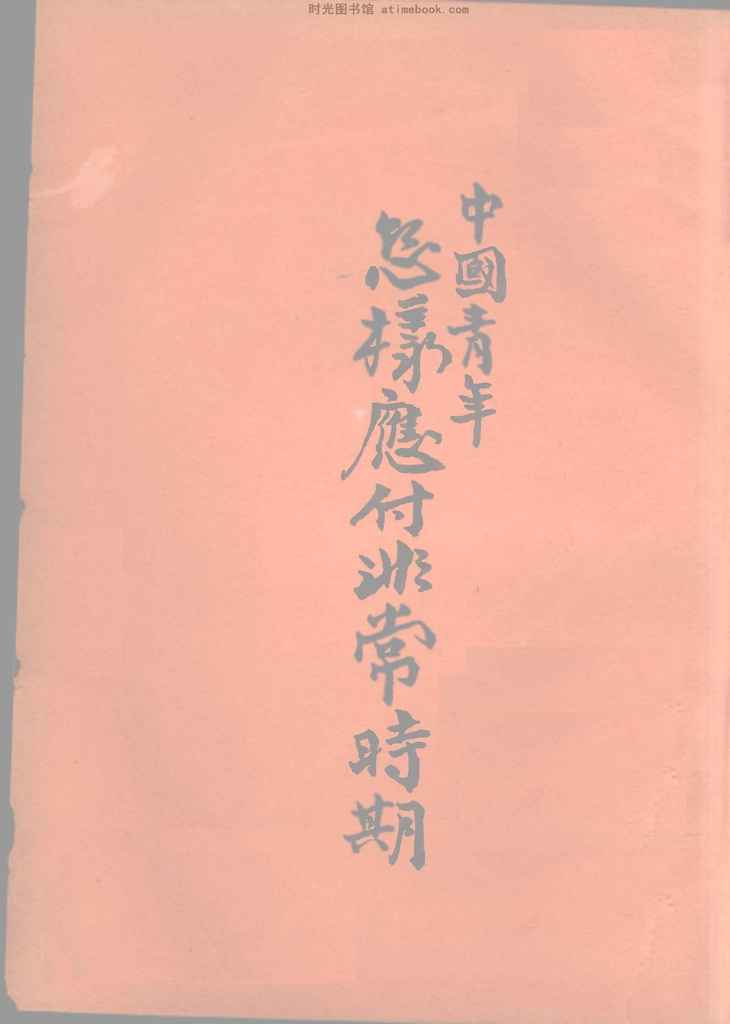 时光图书馆 atimebook.com
中國青年
怎樣應付非常時期